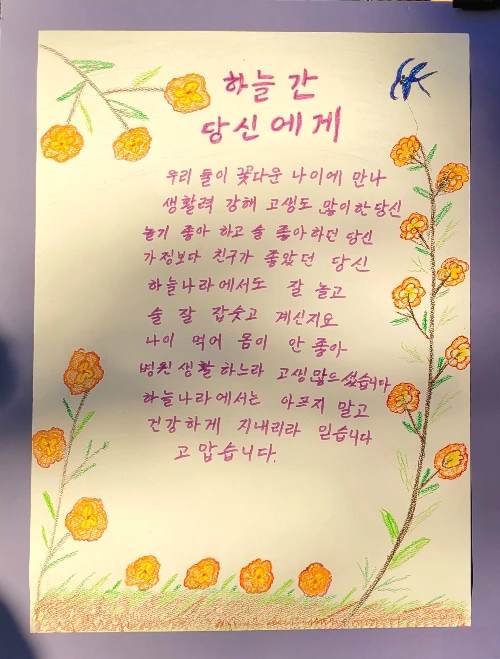 하늘 간
당신에게
우리 둘이 꽃다운 나이에 만나
생활력 강해 고생도 많이한 당신
놀기 좋아 하고 술 좋아하던 당신
가정보다 친구가 좋았던 당신
하늘나라에서도 잘 놀고
술 잘 잡숫고 계신지요
나이 먹어 몸이 안 좋아
병원 생활 하느라 고생 많으셨습니다
하늘나라에서는 아프지 말고
건강하게 지내리라 믿습니다
고맙습니다.